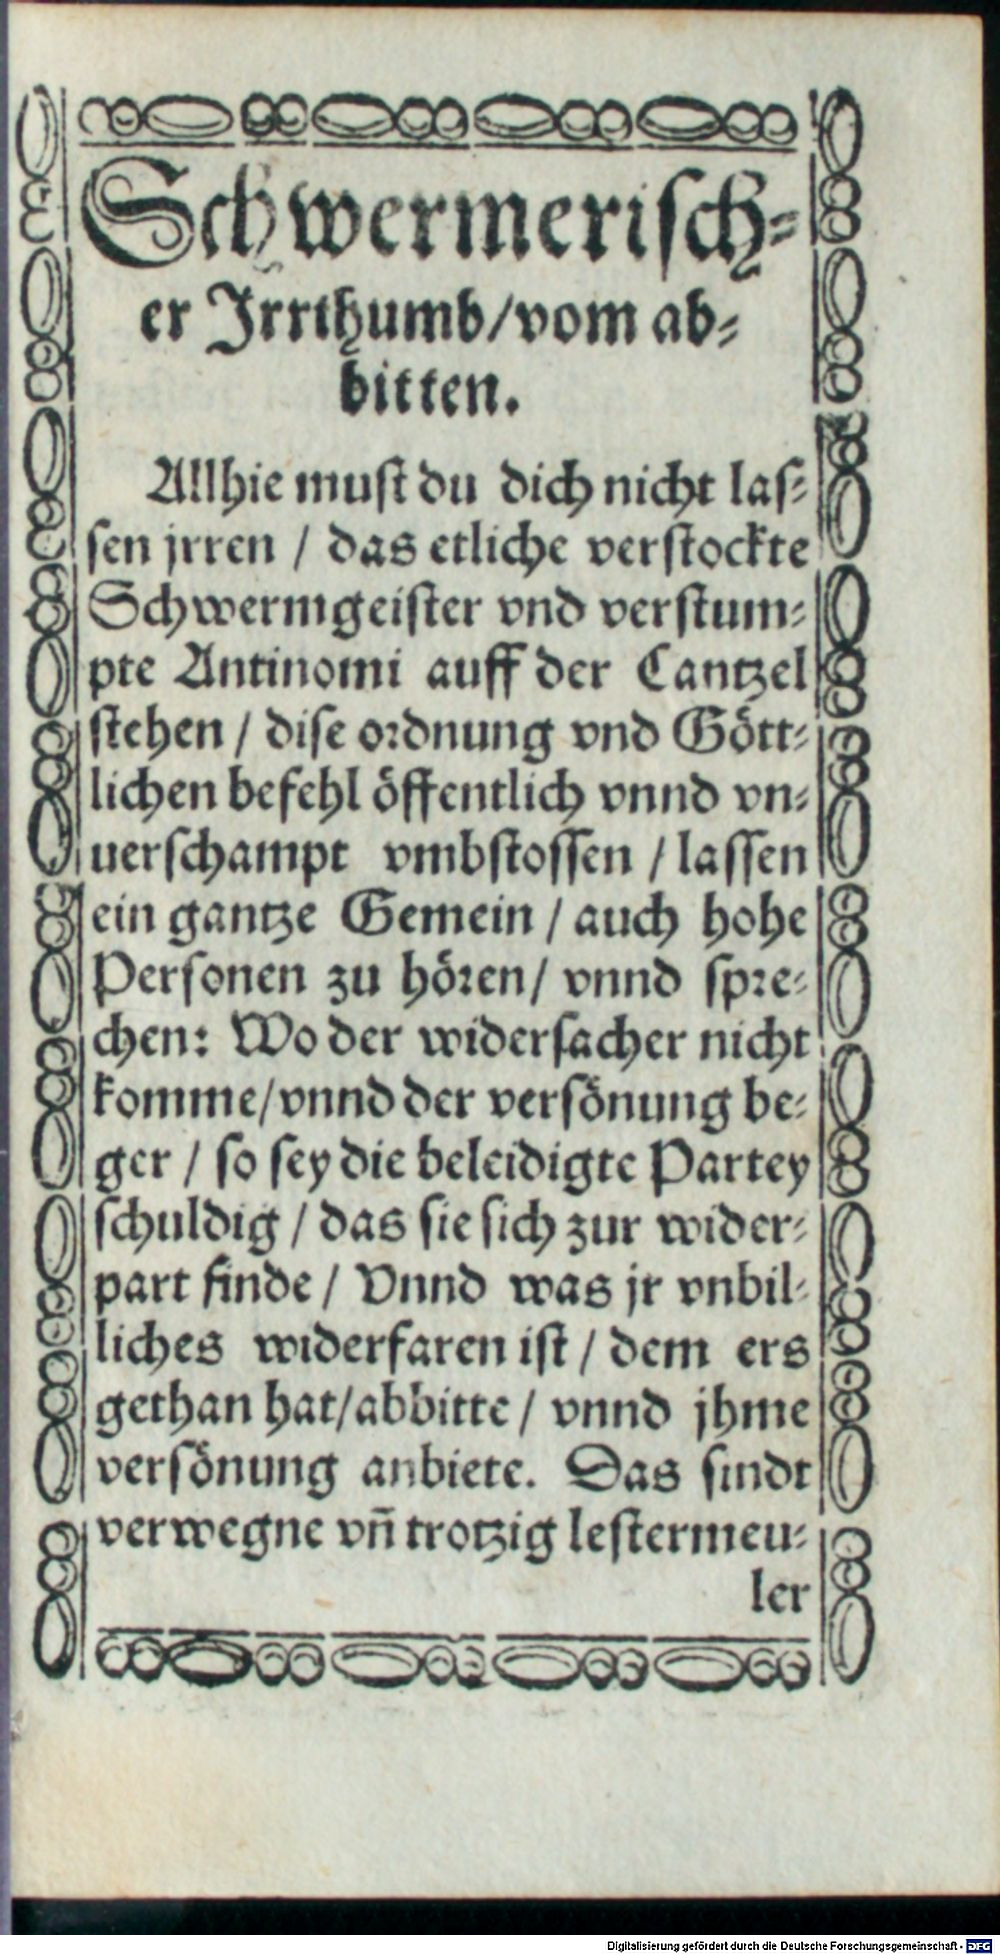 Schwermerisch⸗
er Irrthumb/vom ab⸗
bitten.
Allhie muſt du dich nicht laſ⸗
ſen jrren / das etliche verſtockte
Schwermgeiſter vnd verſtum⸗
pte Antinomi auff der Cantzel
ſtehen / diſe ordnung vnd Gött⸗
lichen befehl öffentlich vnnd vn⸗
uerſchampt vmbſtoſſen / laſſen
ein gantze Gemein / auch hohe
Perſonen zu hören/ vnnd ſpre⸗
chen: Wo der widerſacher nicht
komme/vnnd der verſönung be⸗
ger / ſo ſey die beleidigte Partey
ſchuldig / das ſie ſich zur wider⸗
part finde / Vnnd was jr vnbil⸗
liches widerfaren iſt / dem ers
gethan hat/abbitte / vnnd jhme
verſönung anbiete. Das ſindt
verwegne vn̄ trotzig leſtermeu⸗
ler
Digitalisierung gefördert durch die Deutsche Forschungsgemeinschaft - DFG